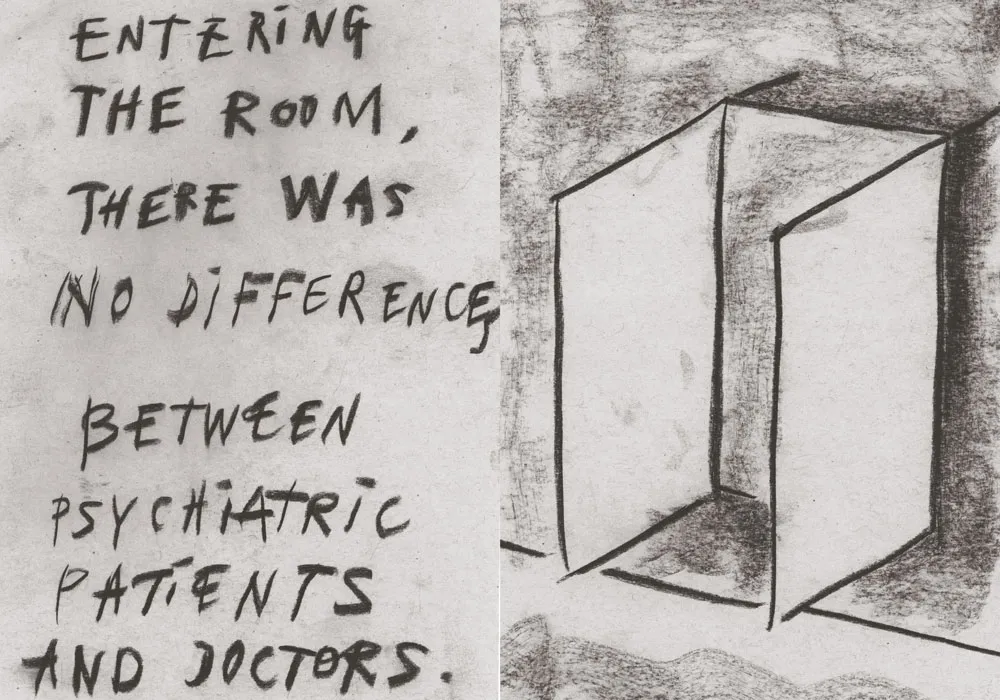 ENTERING
THE ROOM,
THERE WAS
NO DIFFERENCE,
BETWEEN
PSYCHIATRIC
PATIENTS
AND DOCTORS.